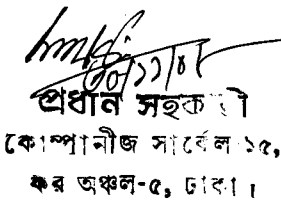 ৩০/১১/০৮
প্রধান সহকারী
কোম্পানীজ সার্কেল-১৫,
কর অঞ্চল-৫, ঢাকা।